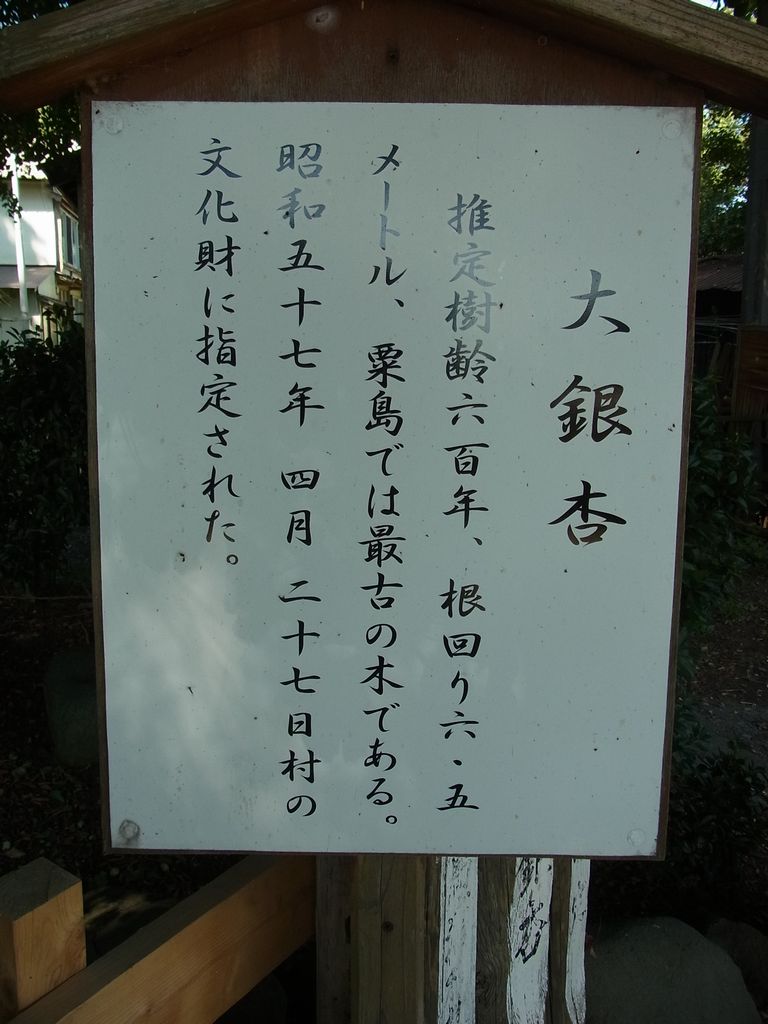 大銀杏
推定樹齢六百年、根回り六・五
メートル、粟島では最古の木である。
昭和五十七年 四月 二十七日村の
文化財に指定された。